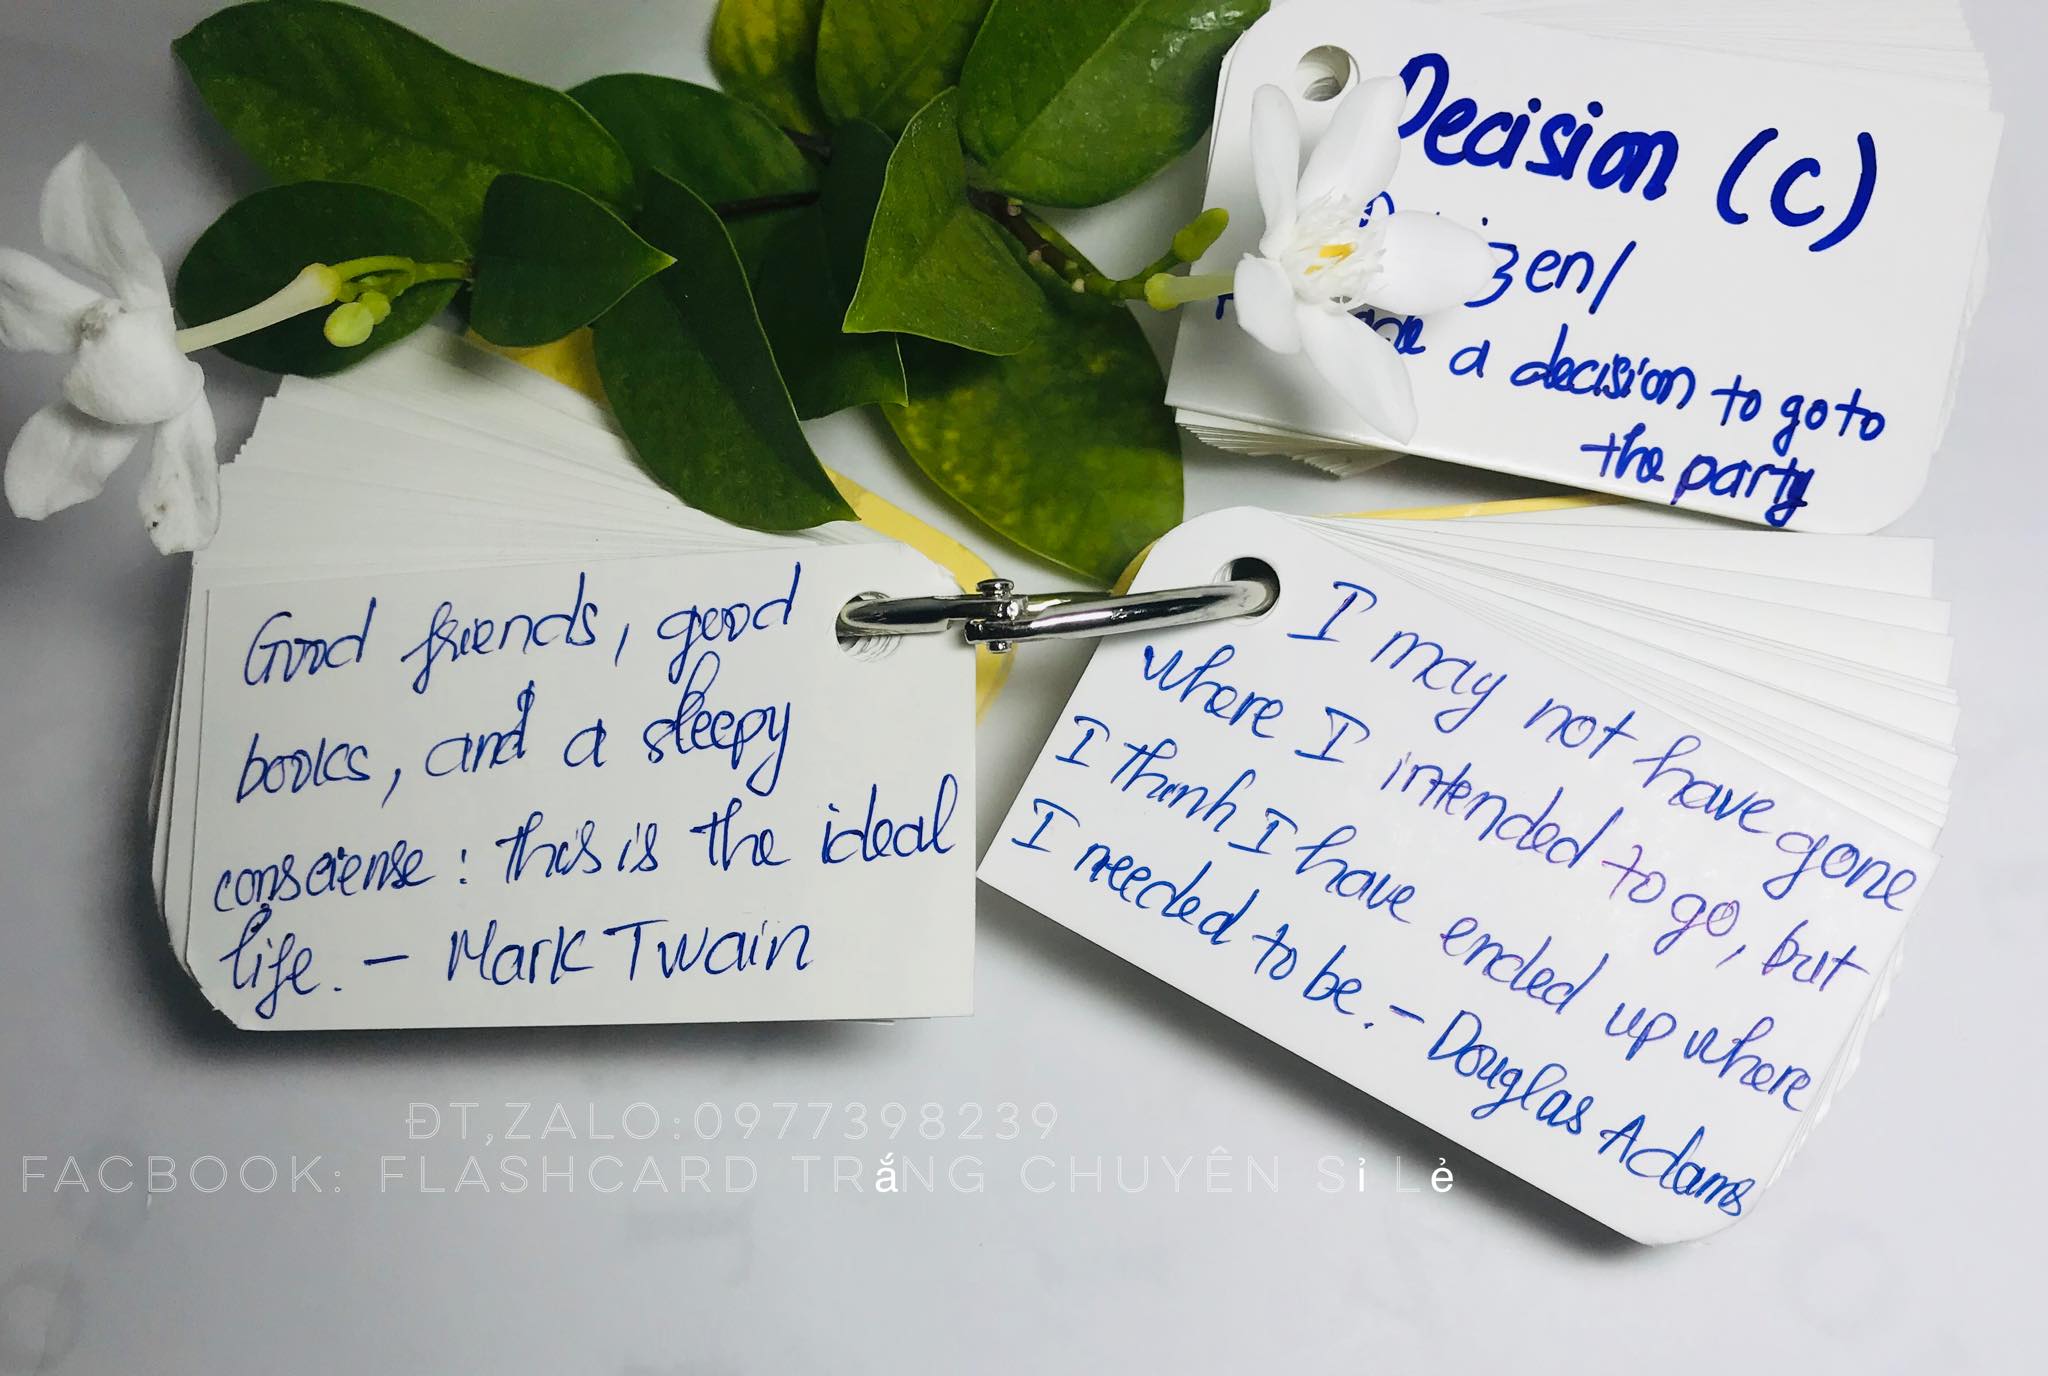 Decision (c)
a decision to go to
the party
Good friends, good
books, and a sleepy
consciense : this is the ideal
life. - Mark Twain
I may not have gone
where I intended to go, but
I think I have ended up where
I needed to be. - Douglas Adams
ĐT,ZALO:0977398239
FACBOOK: FLASHCARD TRắNG CHUYÊN Sỉ Lẻ